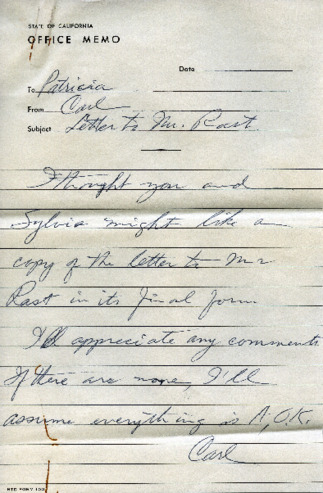 STATE OF CALIFORNIA
OFFICE MEMO
Date
To Patricia
From Carl
Subject Letter to Mr. Rast
I thought you and
Sylvia might like a
copy of the letter to Mr
Rast in its final form.
I'll appreciate any comments
If there are none, I'll
assume everything is A.O.K.
Carl